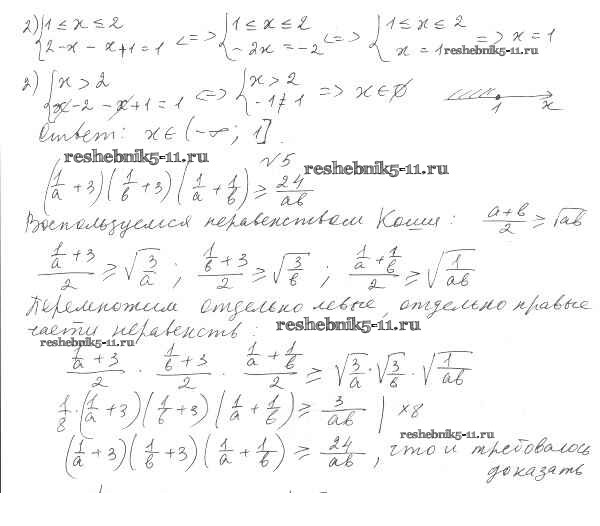 2) { 1 ≤ x ≤ 2 <=> { 1 ≤ x ≤ 2 <=> { 1 ≤ x ≤ 2 => x = 1
2-x - x+1 = 1 - 2x = -2 x = 1 reshebnik5-11.ru
2) { x > 2 <=> { x > 2 => x ∈ ∅
x-2 - x+1 = 1 -1 ≠ 1 1 x
Ответ: x ∈ (-∞; 1].
reshebnik5-11.ru №5 reshebnik5-11.ru
(1/a + 3)(1/b + 3)(1/a + 1/b) ≥ 24/ab
Воспользуемся неравенством Коши: (a+b)/2 ≥ √ab
(1/a + 3)/2 ≥ √(3/a); (1/b + 3)/2 ≥ √(3/b); (1/a + 1/b)/2 ≥ √(1/ab)
Перемножим отдельно левые, отдельно правые
части неравенств: reshebnik5-11.ru
reshebnik5-11.ru
(1/a + 3)/2 · (1/b + 3)/2 · (1/a + 1/b)/2 ≥ √(3/a) · √(3/b) · √(1/ab)
1/8 · (1/a + 3)(1/b + 3)(1/a + 1/b) ≥ 3/ab | ×8
reshebnik5-11.ru
(1/a + 3)(1/b + 3)(1/a + 1/b) ≥ 24/ab, что и требовалось
доказать